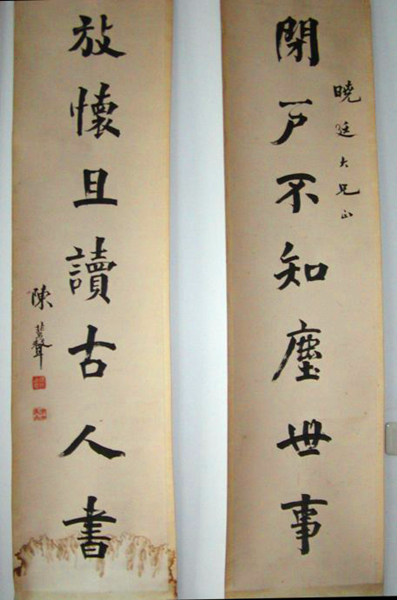 閉戶不知塵世事
曉廷大兄正
放懷且讀古人書
陳